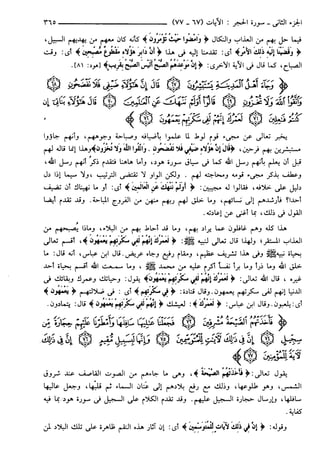 الجزء الثاني - سورة الحجر : الآيات (٦٧ - ٧٧) ٣٦٥
فيما حل بهم من العذاب والنكال ﴿وَامْضُوا حَيْثُ تُؤْمَرُونَ﴾ كأنه كان معهم من يهديهم السبيل،
﴿وَقَضَيْنَا إِلَيْهِ ذَلِكَ الْأَمْرَ﴾ أي: تقدمنا إليه في هذا ﴿أَنَّ دَابِرَ هَؤُلَاءِ مَقْطُوعٌ مُصْبِحِينَ﴾ أي: وقت
الصباح، كما قال في الآية الأخرى: ﴿إِنَّ مَوْعِدَهُمُ الصُّبْحُ أَلَيْسَ الصُّبْحُ بِقَرِيبٍ﴾ [هود: ٨١].
وَجَاءَ أَهْلُ الْمَدِينَةِ يَسْتَبْشِرُونَ قَالَ إِنَّ هَؤُلَاءِ ضَيْفِي فَلَا تَفْضَحُونِ
وَاتَّقُوا اللَّهَ وَلَا تُخْزُونِ قَالُوا أَوَلَمْ نَنْهَكَ عَنِ الْعَالَمِينَ قَالَ هَؤُلَاءِ بَنَاتِي إِنْ كُنْتُمْ
فَاعِلِينَ لَعَمْرُكَ إِنَّهُمْ لَفِي سَكْرَتِهِمْ يَعْمَهُونَ
يخبر تعالى عن مجيء قوم لوط لما علموا بأضيافه وصباحة وجوههم، وأنهم جاؤوا
مستبشرين بهم فرحين، ﴿قَالَ إِنَّ هَؤُلَاءِ ضَيْفِي فَلَا تَفْضَحُونِ وَاتَّقُوا اللَّهَ وَلَا تُخْزُونِ﴾ وهذا إنما قاله لهم
قبل أن يعلم بأنهم رسل الله كما في سياق سورة هود، وأما هاهنا فتقدم ذكر أنهم رسل الله،
وعطف بذكر مجيء قومه ومحاجته لهم. ولكن الواو لا تقتضي الترتيب، ولا سيما إذا دل
دليل على خلافه، فقالوا له مجيبين: ﴿أَوَلَمْ نَنْهَكَ عَنِ الْعَالَمِينَ﴾ أي: أو ما نهيناك أن تضيف
أحداً؟ فأرشدهم إلى نسائهم، وما خلق لهم ربهم منهن من الفروج المباحة. وقد تقدم أيضا
القول في ذلك، بما أغنى عن إعادته.
هذا كله وهم غافلون عما يراد بهم، وما قد أحاط بهم من البلاء، وماذا يُصبحهم من
العذاب المستقر؛ ولهذا قال تعالى لنبيه ﷺ: ﴿لَعَمْرُكَ إِنَّهُمْ لَفِي سَكْرَتِهِمْ يَعْمَهُونَ﴾، أقسم تعالى
بحياة نبيه ﷺ وفي هذا تشريف عظيم، ومقام رفيع وجاه عريض. قال ابن عباس، أنه قال: ما
خلق الله وما ذرأ وما برأ نفساً أكرم عليه من محمد ﷺ، وما سمعت الله أقسم بحياة أحد
غيره، قال الله تعالى: ﴿لَعَمْرُكَ إِنَّهُمْ لَفِي سَكْرَتِهِمْ يَعْمَهُونَ﴾ يقول: وحياتك وعمرك وبقائك في
الدنيا إنهم لفي سكرتهم يعمهون. وقال قتادة: ﴿فِي سَكْرَتِهِمْ﴾ أي: في ضلالتهم ﴿يَعْمَهُونَ﴾
أي: يلعبون. وقال ابن عباس: ﴿لَعَمْرُكَ﴾: لعيشك ﴿إِنَّهُمْ لَفِي سَكْرَتِهِمْ يَعْمَهُونَ﴾ قال: يتمادون.
فَأَخَذَتْهُمُ الصَّيْحَةُ مُشْرِقِينَ فَجَعَلْنَا عَالِيَهَا سَافِلَهَا وَأَمْطَرْنَا عَلَيْهِمْ حِجَارَةً مِنْ
سِجِّيلٍ إِنَّ فِي ذَلِكَ لَآيَاتٍ لِلْمُتَوَسِّمِينَ وَإِنَّهَا لَبِسَبِيلٍ مُقِيمٍ إِنَّ فِي ذَلِكَ لَآيَةً
لِلْمُؤْمِنِينَ
يقول تعالى: ﴿فَأَخَذَتْهُمُ الصَّيْحَةُ﴾، وهي ما جاءهم من الصوت القاصف عند شروق
الشمس، وهو طلوعها، وذلك مع رفع بلادهم إلى عَنان السماء ثم قلبها، وجعل عاليها
سافلها، وإرسال حجارة السجيل عليهم. وقد تقدم الكلام على السجيل في سورة هود بما فيه
كفاية.
وقوله: ﴿إِنَّ فِي ذَلِكَ لَآيَاتٍ لِلْمُتَوَسِّمِينَ﴾ أي: إن آثار هذه النقم ظاهرة على تلك البلاد لمن